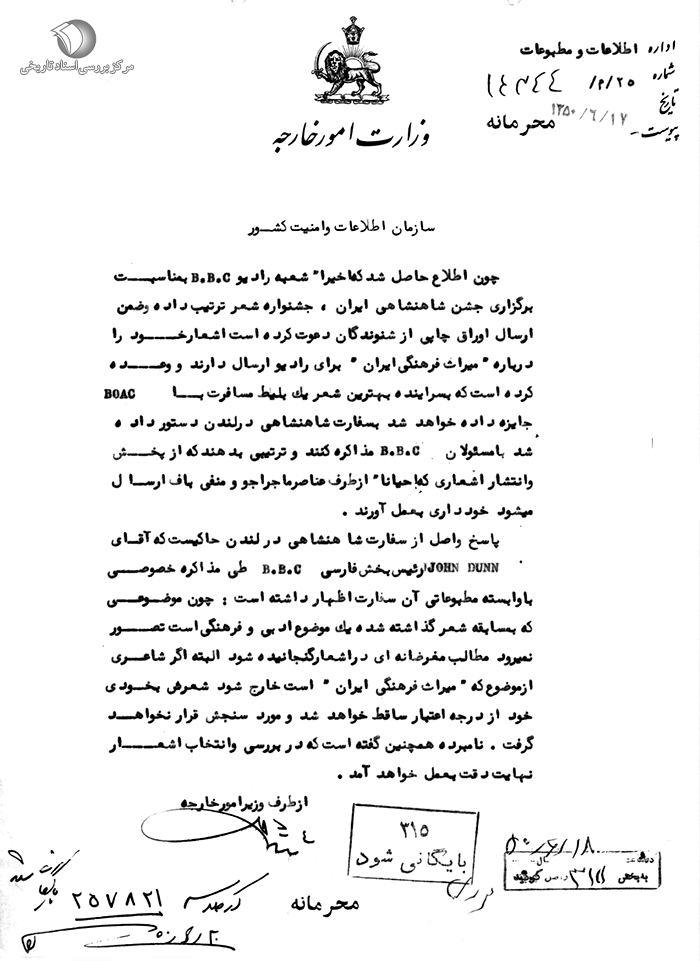 مرکز بررسی اسناد تاریخی
اداره اطلاعات و مطبوعات
شماره ۱۴۳۴۴ /م/۲۵
تاریخ ۱۳۵۰/۶/۱۷
پیوست
محرمانه
وزارت امور خارجه
سازمان اطلاعات و امنیت کشور
چون اطلاع حاصل شد که اخیرا" شعبه رادیو B.B.C بمناسبت
برگزاری جشن شاهنشاهی ایران ، جشنواره شعر ترتیب داده وضمن
ارسال اوراق چاپی از شنوندگان دعوت کرده است اشعار خود را
درباره " میراث فرهنگی ایران " برای رادیو ارسال دارند و وعده
کرده است که بسراینده بهترین شعر یك بلیط مسافرت با BOAC
جایزه داده خواهد شد بسفارت شاهنشاهی در لندن دستور داده
شد با مسئولان B.B.C مذاکره کنند و ترتیبی بدهند که از پخش
وانتشار اشعاری که احیانا" از طرف عناصر ماجراجو و منفی باف ارسال
میشود خود داری بعمل آورند .
پاسخ واصل از سفارت شاهنشاهی در لندن حاکیست که آقای
JOHN DUNN رئیس بخش فارسی B.B.C طی مذاکره خصوصی
با وابسته مطبوعاتی آن سفارت اظهار داشته است : چون موضوعی
که بمسابقه شعر گذاشته شده یك موضوع ادبی و فرهنگی است تصور
نمیرود مطالب مغرضانه ای در اشعار گنجانیده شود البته اگر شاعری
از موضوع که " میراث فرهنگی ایران " است خارج شود شعرش بخودی
خود از درجه اعتبار ساقط خواهد شد و مورد سنجش قرار نخواهد
گرفت . نامبرده همچنین گفته است که در بررسی وانتخاب اشعار
نهایت دقت بعمل خواهد آمد .
از طرف وزیر امور خارجه
۳۱۵
بایگانی شود
۵۰/۶/۱۸
به بخش ۳۱۵ واصل گردید
۲۵۷۸۲۱
محرمانه